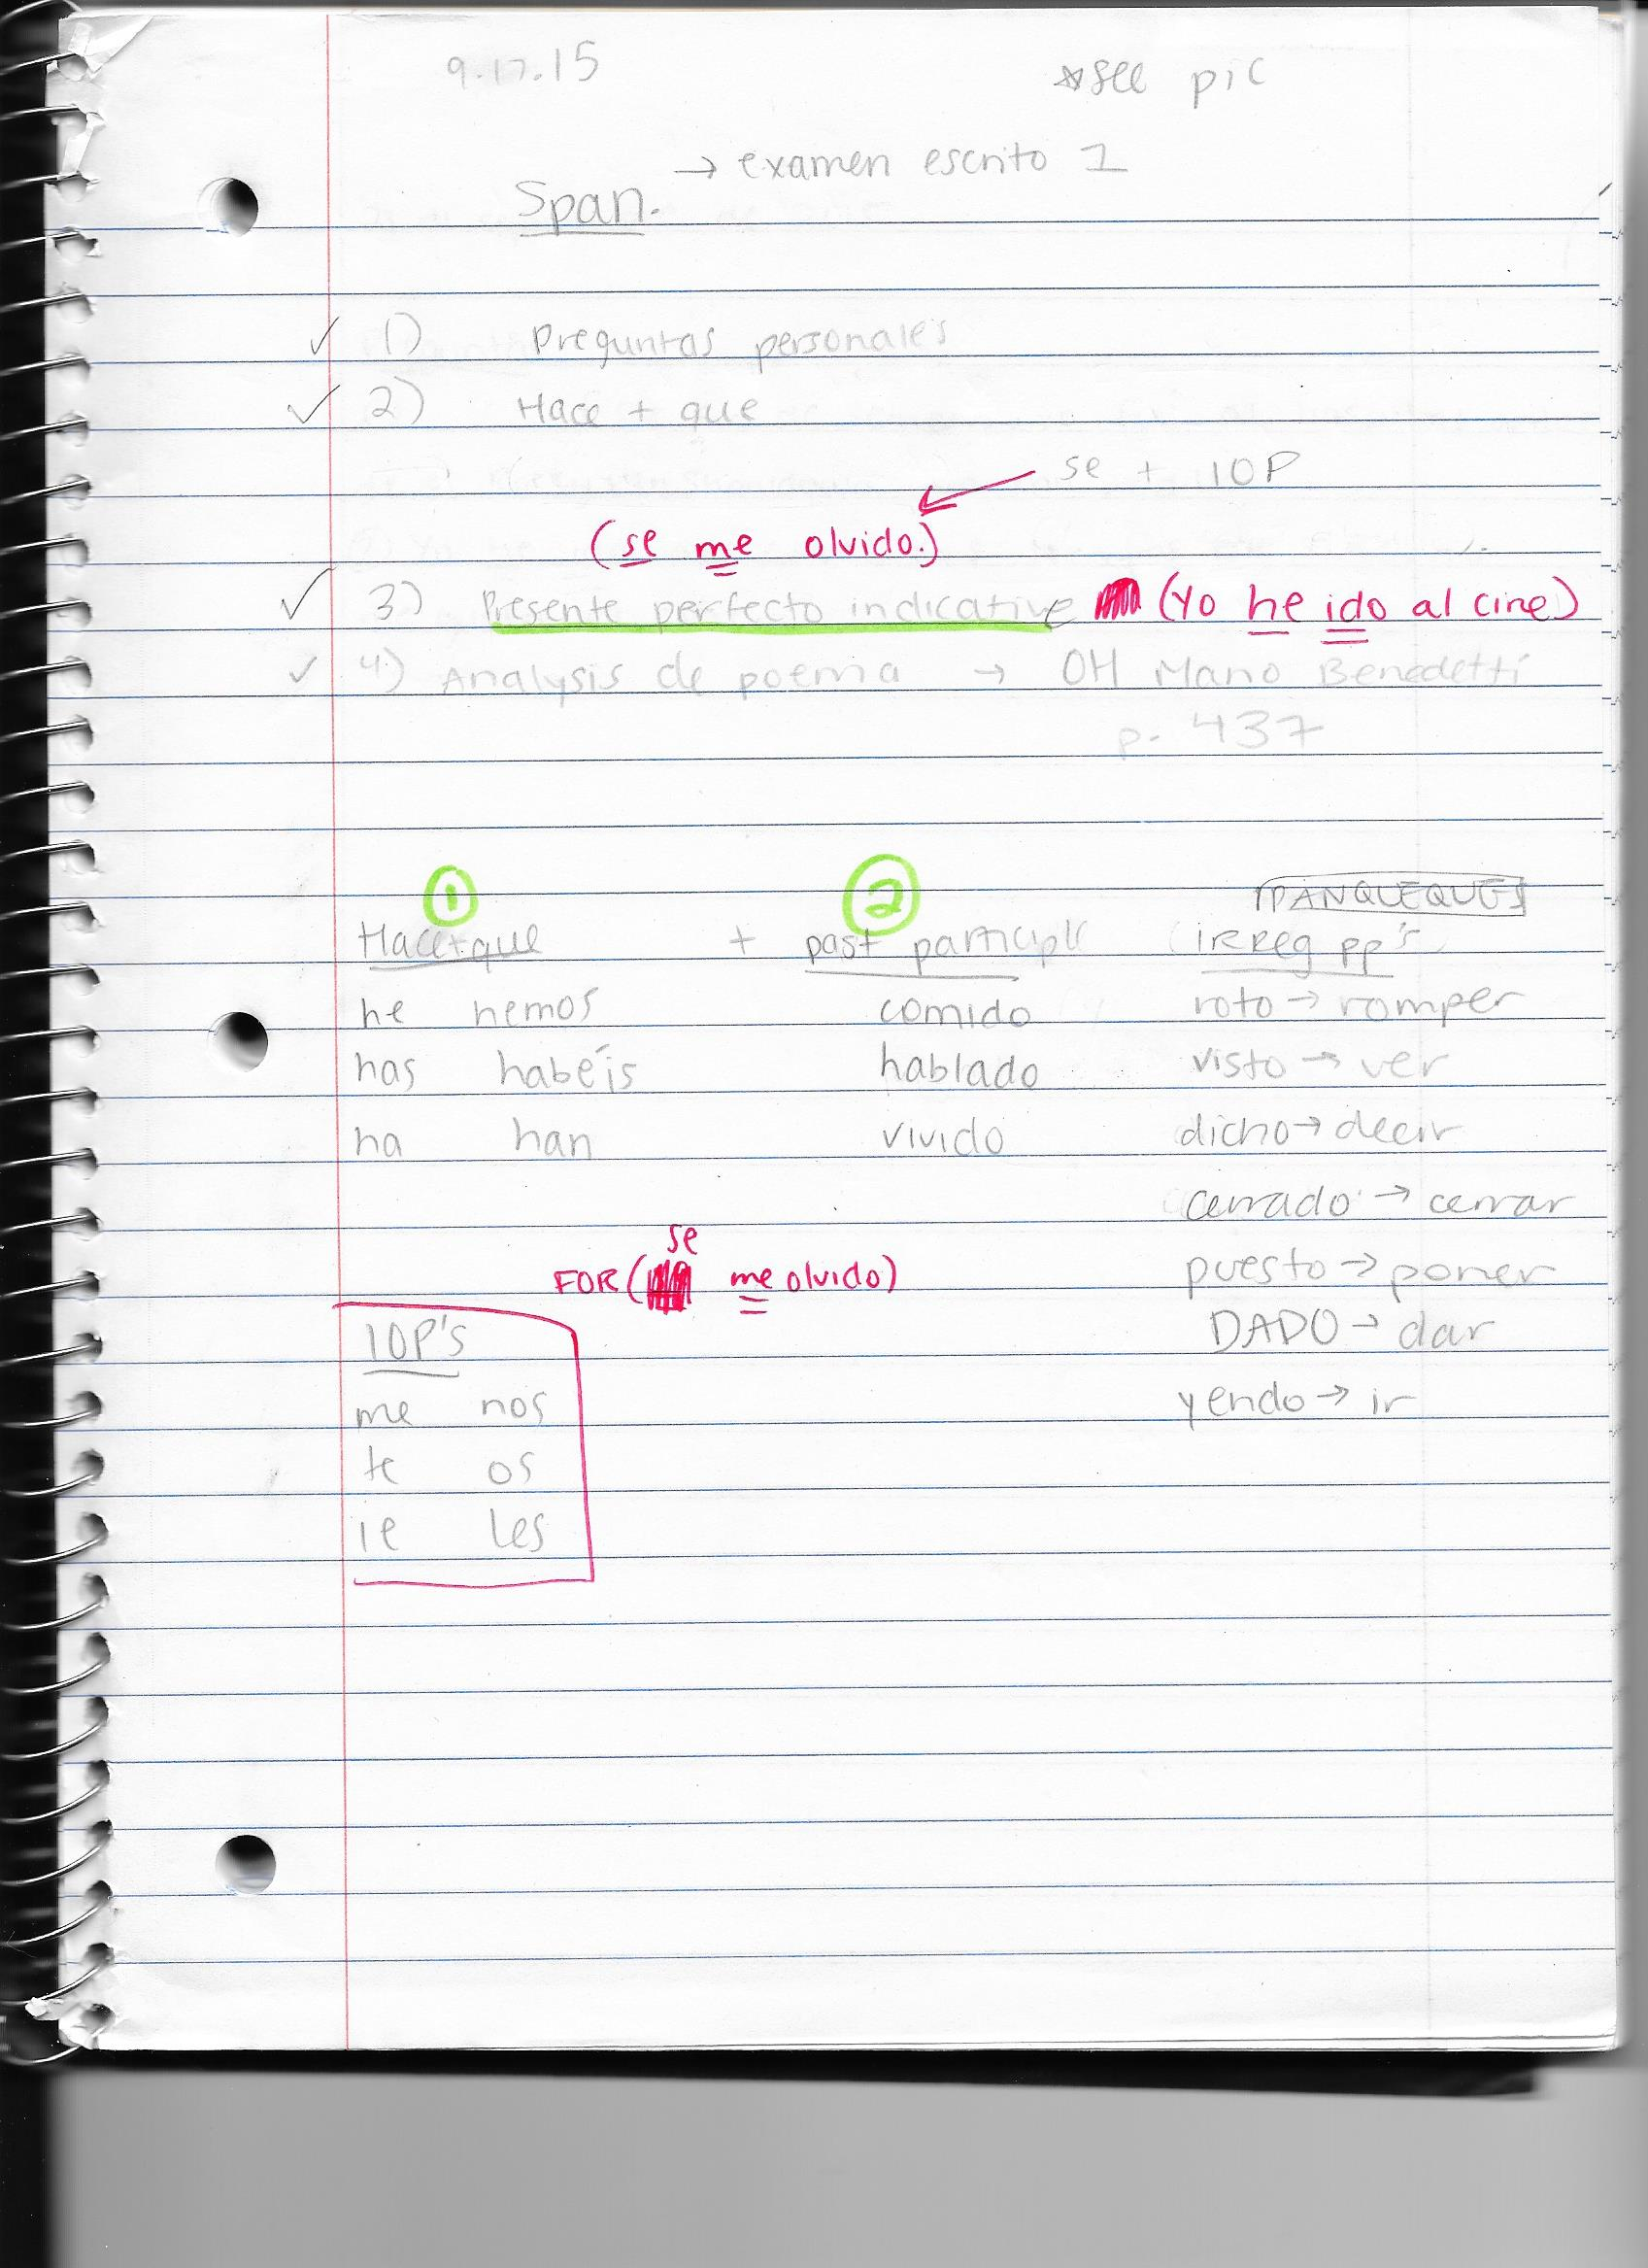 9.17.15 *see pic
→ examen escrito 1
Span.
✓ 1) Preguntas personales
✓ 2) Hace + que
se + IOP
(se me olvido.)
✓ 3) Presente perfecto indicative (Yo he ido al cine)
✓ 4) Analysis de poema → OH Mario Benedetti
p. 437
① ② PANQUEQUES
Hace+que + past participle irreg pp's
he hemos comido roto → romper
has habéis hablado visto → ver
ha han vivido dicho → decir
cerrado → cerrar
se
puesto → poner
FOR ( me olvido)
IOP'S DADO → dar
me nos yendo → ir
te os
le les